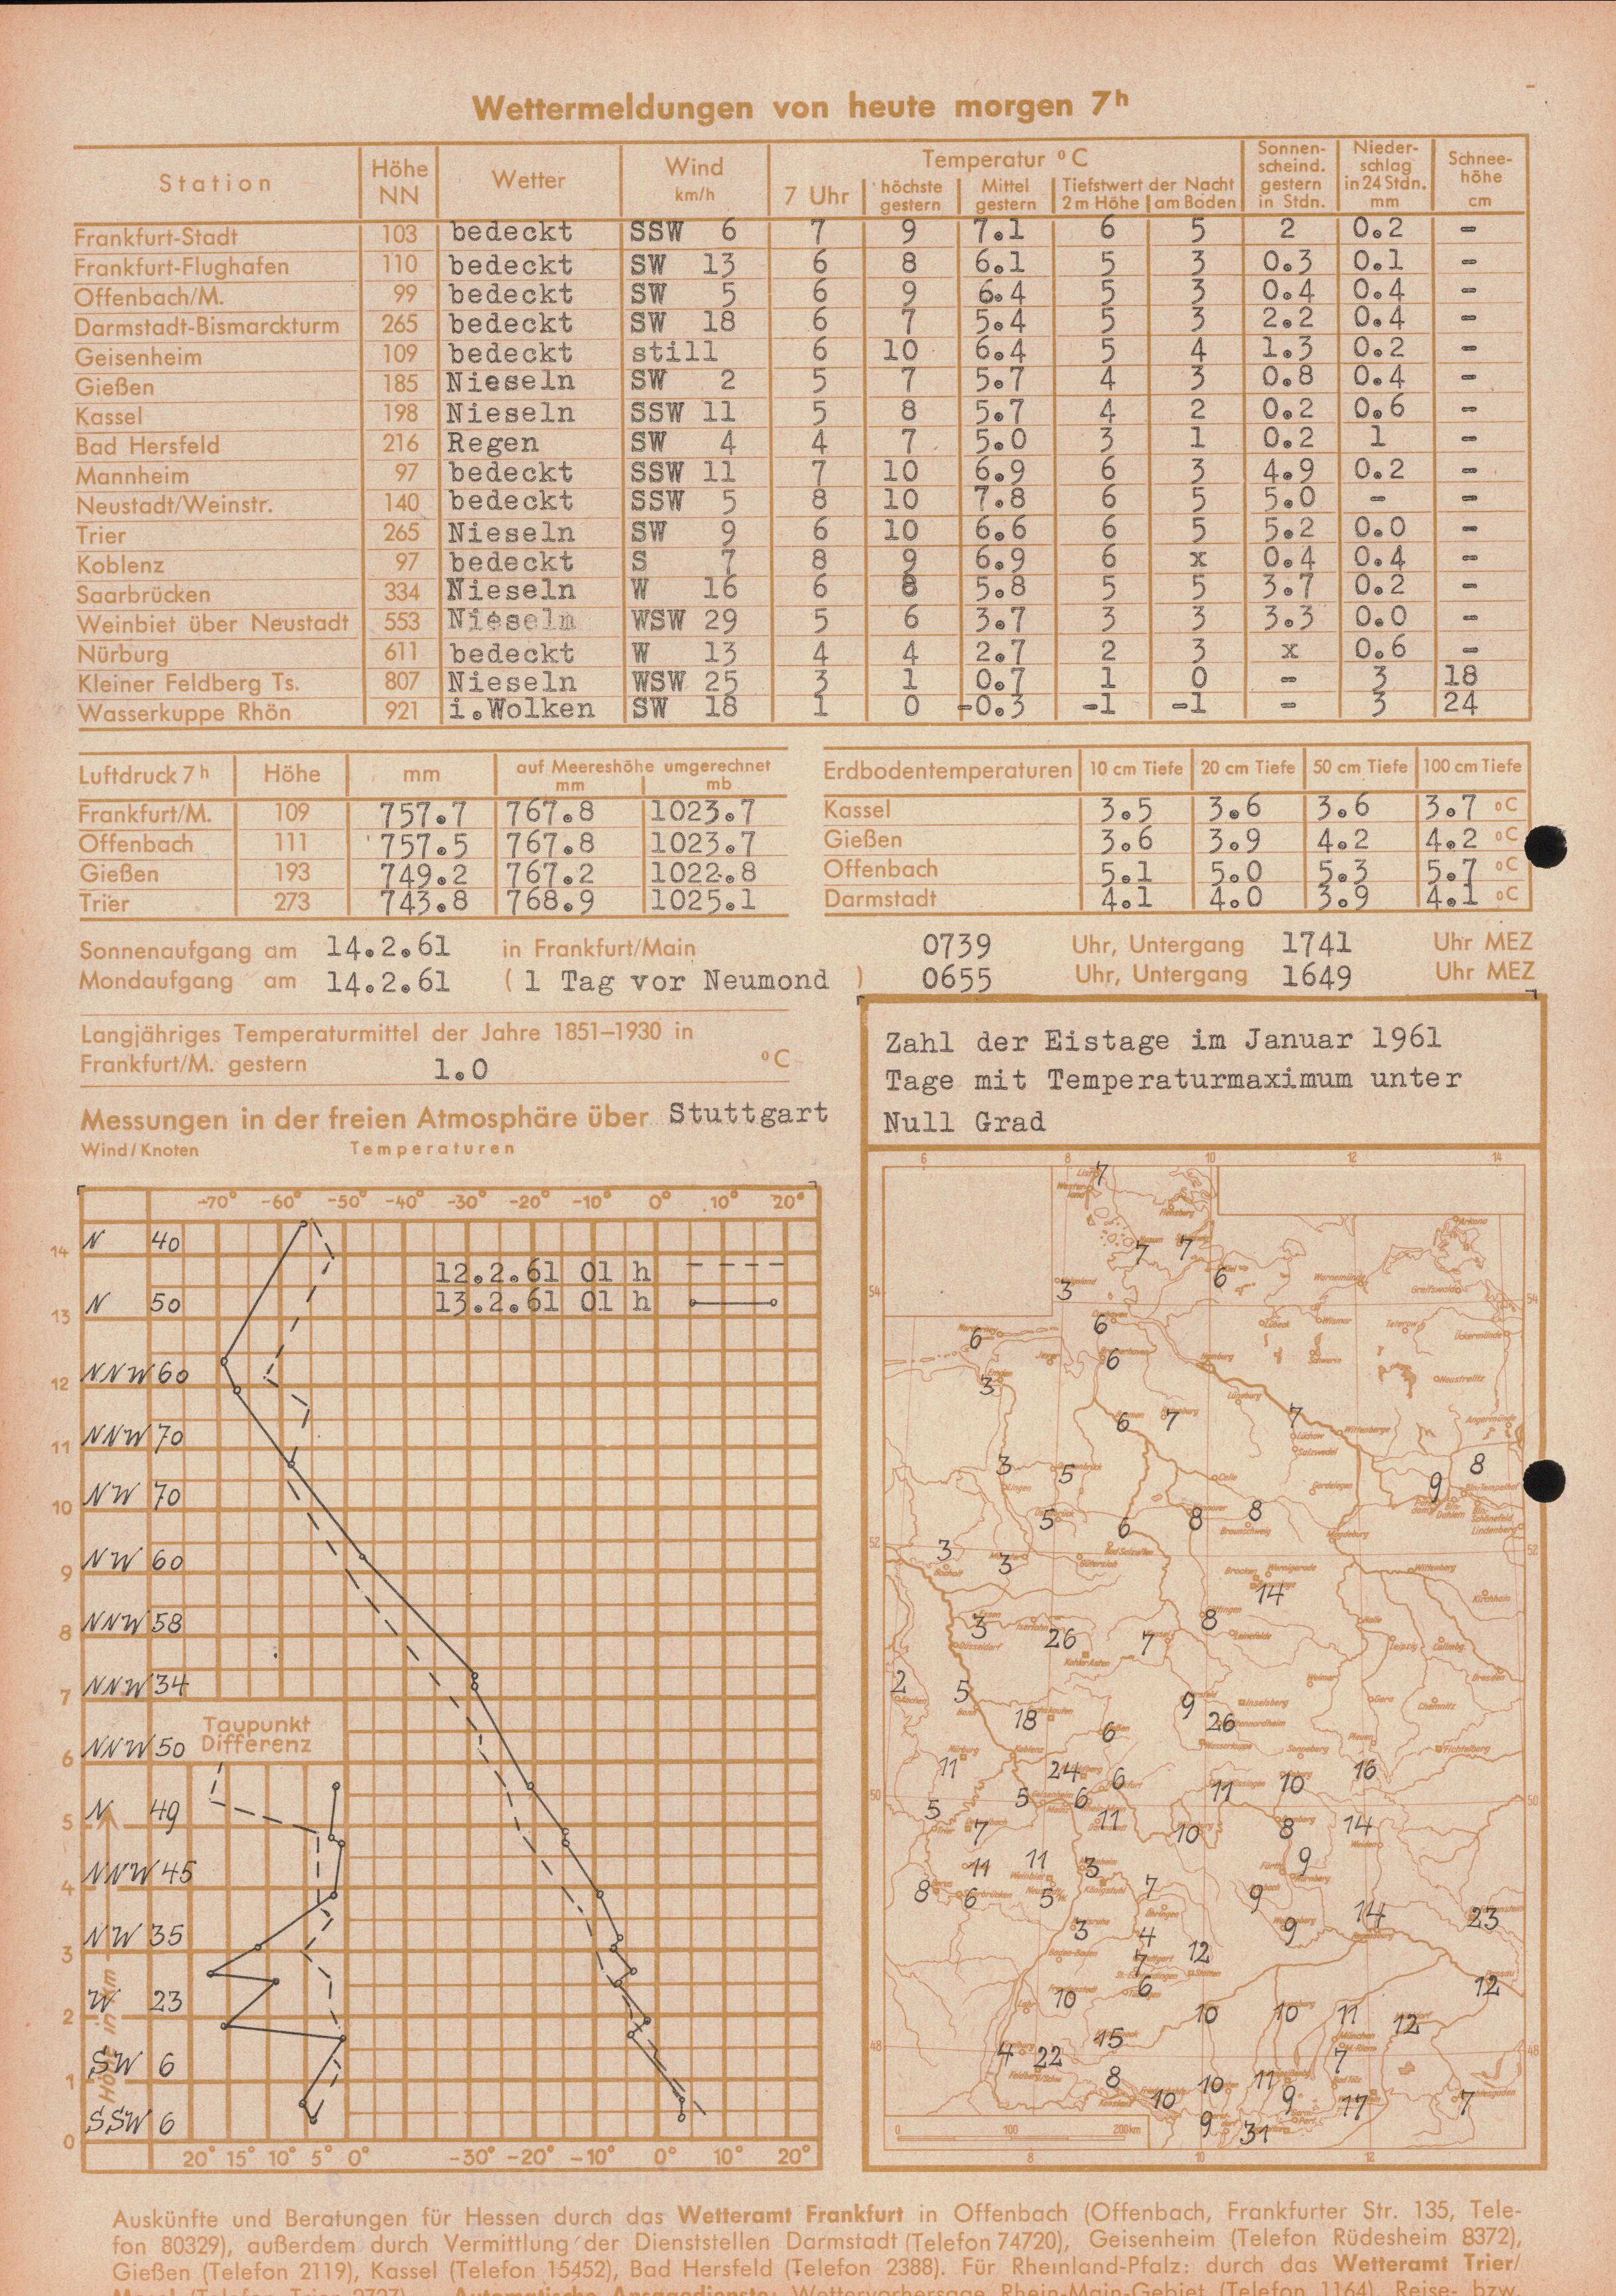 Wettermeldungen von heute morgen 7ʰ
Station Höhe NN Wetter Wind km/h Temperatur °C Sonnenscheind. gestern in Stdn. Niederschlag in 24 Stdn. mm Schneehöhe cm
7 Uhr höchste gestern Mittel gestern Tiefstwert der Nacht 2 m Höhe am Boden
Frankfurt-Stadt 103 bedeckt SSW 6 7 9 7.1 6 5 2 0.2 -
Frankfurt-Flughafen 110 bedeckt SW 13 6 8 6.1 5 3 0.3 0.1 -
Offenbach/M. 99 bedeckt SW 5 6 9 6.4 5 3 0.4 0.4 -
Darmstadt-Bismarckturm 265 bedeckt SW 18 6 7 5.4 5 3 2.2 0.4 -
Geisenheim 109 bedeckt still 6 10 6.4 5 4 1.3 0.2 -
Gießen 185 Nieseln SW 2 5 7 5.7 4 3 0.8 0.4 -
Kassel 198 Nieseln SSW 11 5 8 5.7 4 2 0.2 0.6 -
Bad Hersfeld 216 Regen SW 4 4 7 5.0 3 1 0.2 1 -
Mannheim 97 bedeckt SSW 11 7 10 6.9 6 3 4.9 0.2 -
Neustadt/Weinstr. 140 bedeckt SSW 5 8 10 7.8 6 5 5.0 - -
Trier 265 Nieseln SW 9 6 10 6.6 6 5 5.2 0.0 -
Koblenz 97 bedeckt S 7 8 9 6.9 6 x 0.4 0.4 -
Saarbrücken 334 Nieseln W 16 6 8 5.8 5 5 3.7 0.2 -
Weinbiet über Neustadt 553 Nieseln WSW 29 5 6 3.7 3 3 3.3 0.0 -
Nürburg 611 bedeckt W 13 4 4 2.7 2 3 x 0.6 -
Kleiner Feldberg Ts. 807 Nieseln WSW 25 3 1 0.7 1 0 - 3 18
Wasserkuppe Rhön 921 i.Wolken SW 18 1 0 -0.3 -1 -1 - 3 24
Luftdruck 7ʰ Höhe mm auf Meereshöhe umgerechnet mm mb
Frankfurt/M. 109 757.7 767.8 1023.7
Offenbach 111 757.5 767.8 1023.7
Gießen 193 749.2 767.2 1022.8
Trier 273 743.8 768.9 1025.1
Erdbodentemperaturen 10 cm Tiefe 20 cm Tiefe 50 cm Tiefe 100 cm Tiefe
Kassel 3.5 3.6 3.6 3.7 °C
Gießen 3.6 3.9 4.2 4.2 °C
Offenbach 5.1 5.0 5.3 5.7 °C
Darmstadt 4.1 4.0 3.9 4.1 °C
Sonnenaufgang am 14.2.61 in Frankfurt/Main 0739 Uhr, Untergang 1741 Uhr MEZ
Mondaufgang am 14.2.61 (1 Tag vor Neumond ) 0655 Uhr, Untergang 1649 Uhr MEZ
Langjähriges Temperaturmittel der Jahre 1851–1930 in
Frankfurt/M. gestern 1.0 °C
Messungen in der freien Atmosphäre über Stuttgart
Wind/Knoten Temperaturen
-70° -60° -50° -40° -30° -20° -10° 0° 10° 20°
14 N 40
12.2.61 01 h
13 N 50 13.2.61 01 h
12 NNW 60
11 NNW 70
10 NW 70
9 NW 60
8 NNW 58
7 NNW 34
Taupunkt
6 NNW 50 Differenz
5 N 49
4 NNW 45
3 NW 35
2 W 23
1 SW 6
0 SSW 6
Höhe in km
20° 15° 10° 5° 0° -30° -20° -10° 0° 10° 20°
Zahl der Eistage im Januar 1961
Tage mit Temperaturmaximum unter
Null Grad
6 8 10 12 14
7
7 7
3 6
54 54
6 6
6
3
6 7 7
3 5 8
9
5 6 8 8
52 52
3 3
14
3 26 7 8
2 5
18 6 9 26
11 24 6 11 10 16
50 50
5 5 6 11 10 8 14
7
11 11 3 9
8 6 5 7 9
3 4 9 14 23
7 12
10 6 10 10 11 12 12
48 48
4 22 15 7
8 10 10 11 9 17 7
9 31
0 100 200 km
8 10 12
Auskünfte und Beratungen für Hessen durch das Wetteramt Frankfurt in Offenbach (Offenbach, Frankfurter Str. 135, Tele-
fon 80329), außerdem durch Vermittlung der Dienststellen Darmstadt (Telefon 74720), Geisenheim (Telefon Rüdesheim 8372),
Gießen (Telefon 2119), Kassel (Telefon 15452), Bad Hersfeld (Telefon 2388). Für Rheinland-Pfalz: durch das Wetteramt Trier/
Mosel (Telefon Trier 2727). Automatische Ansagedienste: Wettervorhersage Rhein-Main-Gebiet (Telefon 1164), Reise- bzw.